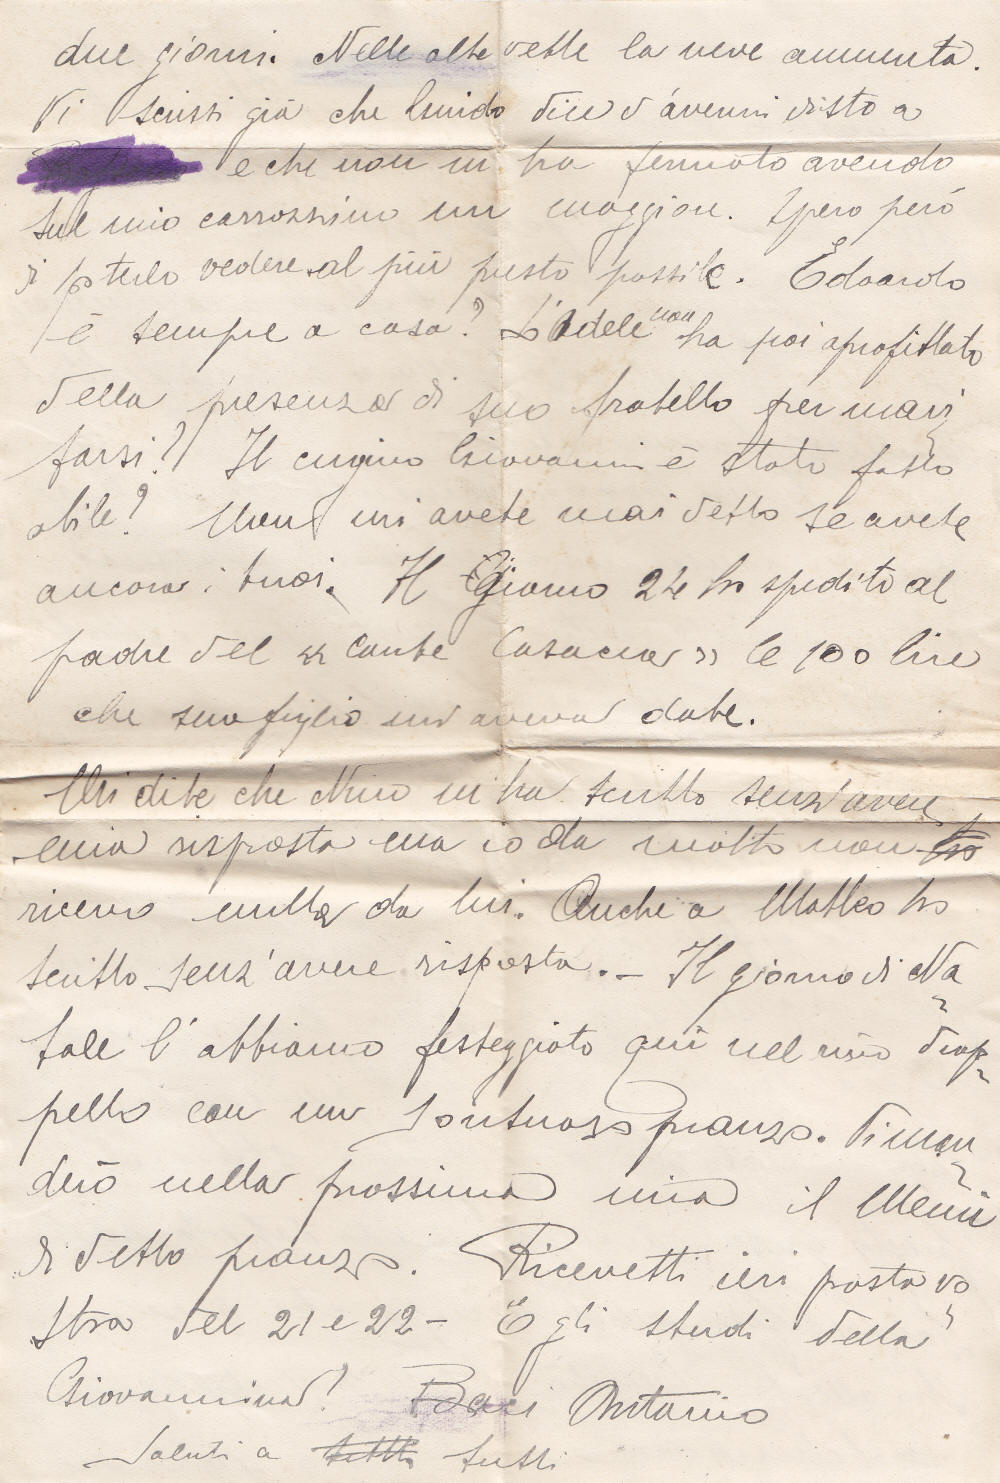 due giorni. Nelle alte vette la neve aumenta.
Vi scrissi già che Guido dice d'avermi visto a
e che non mi ha fermato avendo
sul mio carrozzino un maggiore. Spero però
di poterlo vedere al più presto possile. Edoardo
è sempre a casa? L'Adele non ha poi aprofittato
della presenza di suo fratello per mari
tarsi? Il cugino Giovanni è stato fatto
abile? Non mi avete mai detto se avete
ancora i buoi. Il Giorno 24 ho spedito al
padre del « Conte Casacca » le 100 lire
che suo figlio mi aveva date.
Mi dite che Nino mi ha scritto senz'avere
mia risposta ma io da molto non ho
ricevo nulla da lui. Anche a Matteo ho
scritto senz'avere risposta. – Il giorno di Na
tale l'abbiamo festeggiato quì nel mio drap
pello con un sontuoso pranzo. Vi man
derò nella prossima mia il Menù
di detto pranzo. Ricevetti ieri posta vo
stra del 21 e 22 – E gli studi della
Giovannina? Baci Antonio
Saluti a tutti tutti